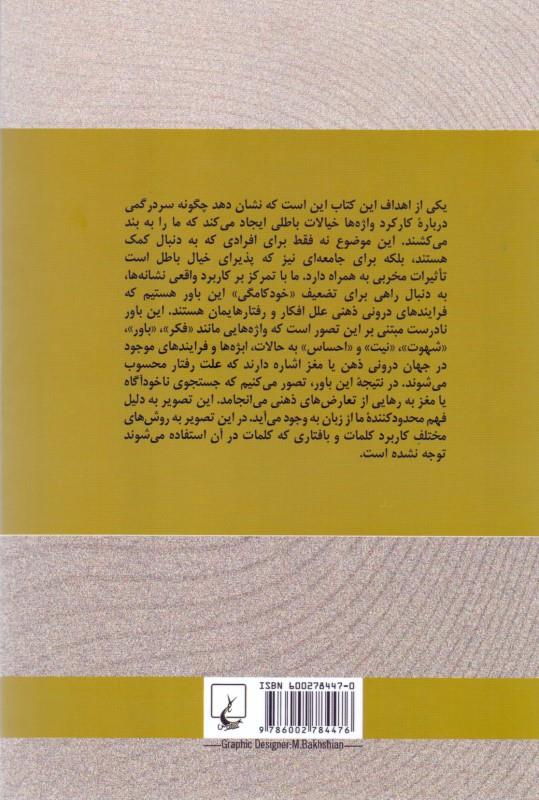 یکی از اهداف این کتاب این است که نشان دهد چگونه سردرگمی
دربارهٔ کارکرد واژه‌ها خیالات باطلی ایجاد می‌کند که ما را به بند
می‌کشند. این موضوع نه فقط برای افرادی که به دنبال کمک
هستند، بلکه برای جامعه‌ای نیز که پذیرای خیال باطل است
تأثیرات مخربی به همراه دارد. ما با تمرکز بر کاربرد واقعی نشانه‌ها،
به دنبال راهی برای تضعیف «خودکامگی» این باور هستیم که
فرایندهای درونی ذهنی علل افکار و رفتارهایمان هستند. این باور
نادرست مبتنی بر این تصور است که واژه‌هایی مانند «فکر»، «باور»،
«شهوت»، «نیت» و «احساس» به حالات، ابژه‌ها و فرایندهای موجود
در جهان درونی ذهن یا مغز اشاره دارند که علت رفتار محسوب
می‌شوند. در نتیجهٔ این باور، تصور می‌کنیم که جستجوی ناخودآگاه
یا مغز به رهایی از تعارض‌های ذهنی می‌انجامد. این تصویر به دلیل
فهم محدودکنندهٔ ما از زبان به وجود می‌آید. در این تصویر به روش‌های
مختلفِ کاربرد کلمات و بافتاری که کلمات در آن استفاده می‌شوند
توجه نشده است.
ISBN 600278447-0
9 786002 784476
Graphic Designer:M.Bakhshian